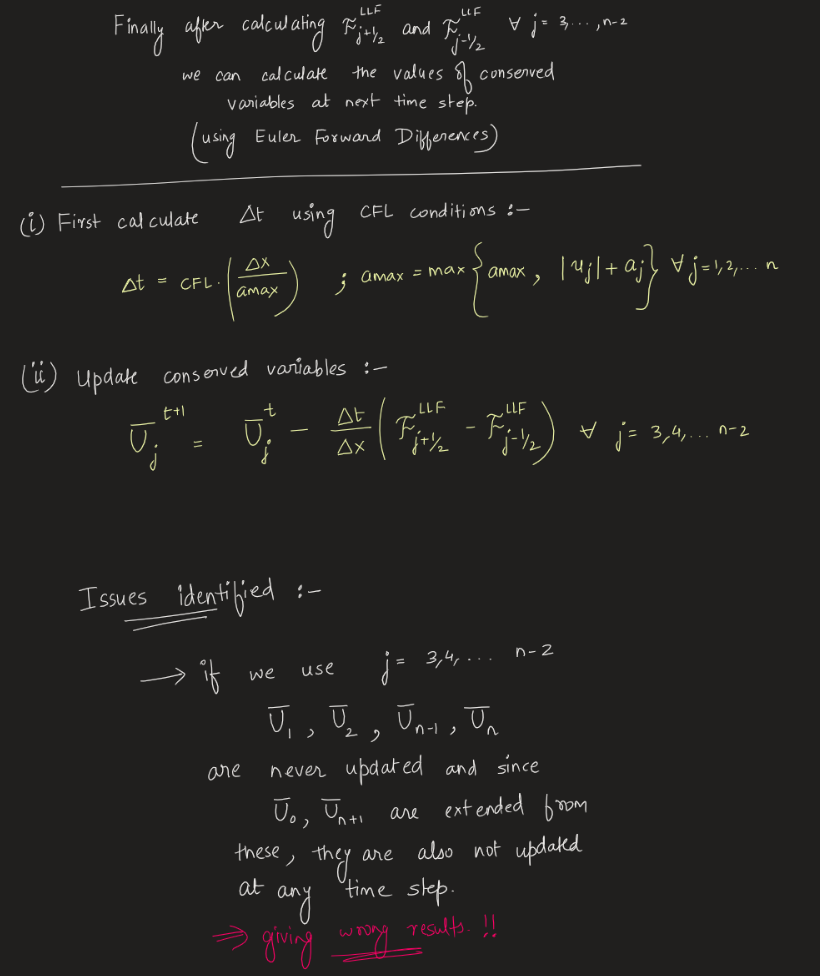 Finally after calculating 𝓕_{j+1/2}^{LLF} and 𝓕_{j-1/2}^{LLF} ∀ j = 3, ..., n-2
we can calculate the values of conserved
variables at next time step.
(using Euler Forward Differences)
(i) First calculate Δt using CFL conditions :-
Δt = CFL · (Δx / amax) ; amax = max { amax, |u_j| + a_j } ∀ j = 1, 2, ... n
(ii) Update conserved variables :-
U̅_j^{t+1} = U̅_j^t - Δt/Δx ( 𝓕_{j+1/2}^{LLF} - 𝓕_{j-1/2}^{LLF} ) ∀ j = 3, 4, ... n-2
Issues identified :-
→ if we use j = 3, 4, ... n-2
U̅_1, U̅_2, U̅_{n-1}, U̅_n
are never updated and since
U̅_0, U̅_{n+1} are extended from
these, they are also not updated
at any time step.
⇒ giving wrong results. !!